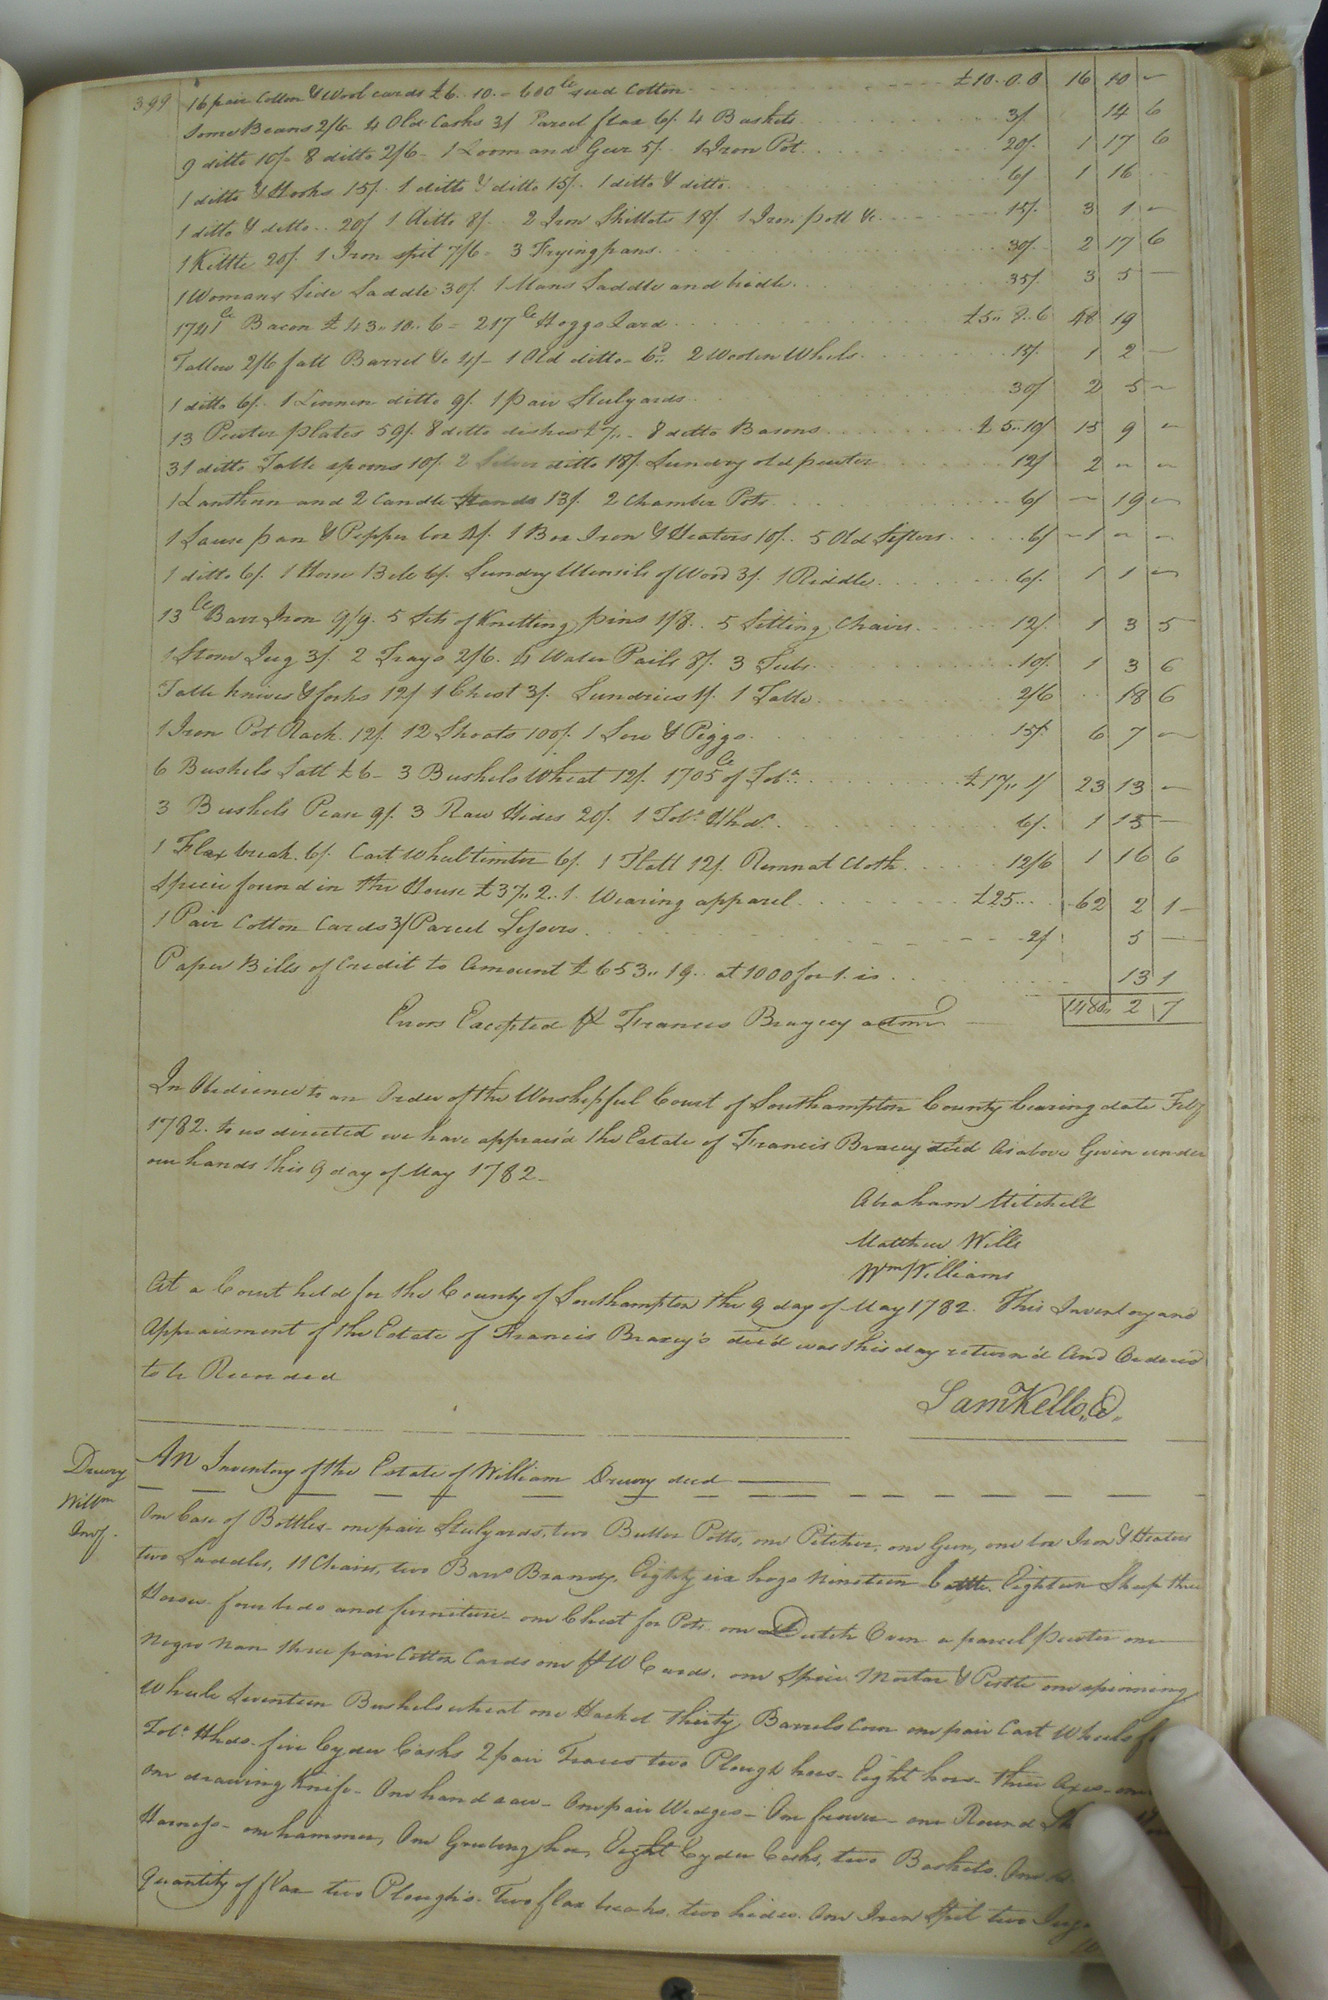 399 16 pair Cotton & Wool cards £6. 10. - 600 lb seed Cotton £10. 0. 0 16 10 -
Some Beans 2/6 4 Old Casks 3/ Parcel flax 6/. 4 Baskets 3/ 14 6
9 ditto 10/- 8 ditto 2/6 - 1 Loom and Geer 5/. 1 Iron Pot 20/. 1 17 6
1 ditto & Hooks 15/. 1 ditto & ditto 15/. 1 ditto & ditto 6/ 1 16
1 ditto & ditto .. 20/ 1 ditto 8/. 2 Iron Skillets 18/. 1 Iron pott &c 15/. 3 1 -
1 Kettle 20/. 1 Iron spit 7/6 - 3 Frying pans 30/. 2 17 6
1 Womans Side Saddle 30/. 1 Mans Saddle and bridle 35/. 3 5 -
1741 lb Bacon £43.. 10.. 6 = 217 lb Hoggs Lard £5.. 8.. 6 48 19
Tallow 2/6 fatt Barrel &c 4/- 1 Old ditto - 6d. 2 Woolen Wheels 15/. 1 2 -
1 ditto 6/. 1 Linnen ditto 9/. 1 pair Stilyards 30/ 2 5 -
13 Pewter plates 59/. 8 ditto dishes £7.. - 8 ditto Basons £5..10/ 15 9 -
31 ditto Table spoons 10/. 2 ditto 18/. Sundry old pewter 12/ 2 - -
1 Lanthorn and 2 Candle Stands 13/. 2 Chamber Pots 6/ - 19 -
1 Sause pan & Pepper box 4/. 1 Box Iron & Heaters 10/. 5 Old Sifters 6/ - 1 - -
1 ditto 6/. 1 Horse Bele 6/. Sundry Utensils of Wood 3/. 1 Riddle 6/. 1 1 -
13 lb Barr Iron 9/9. 5 Sets of Knitting pins 1/8.. 5 Sitting Chairs 12/. 1 3 5
1 Stone Jug 3/. 2 Trays 2/6. 4 Water Pails 8/. 3 Tubs 10/. 1 3 6
Table knives & forks 12/ 1 Chest 3/. Sundries 1/. 1 Table 2/6 18 6
1 Iron Pot Rack. 12/. 12 Shoats 100/. 1 Sow & Piggs 15/. 6 7 -
6 Bushels Salt £6 - 3 Bushels Wheat 12/. 1705 lb of Toba. £17.. 1/ 23 13 -
3 Bushels Pease 9/. 3 Raw Hides 20/. 1 Toba. Hhd. 6/. 1 15 -
1 Flax break. 6/. Cart Wheel timber 6/. 1 Still 12/. Remnat Cloth 12/6 1 16 6
Specie found in the House £37.. 2.. 1. Wearing apparel £25... 62 2 1
1 Pair Cotton Cards 3/ Parcel 2/ 5 -
Paper Bills of Credit to Amount £653.. 19.. at 1000 for 1. is 13 1
Errors Excepted Francis Bracey admr 2 7
In Obedience to an Order of the Worshipful Court of Southampton County bearing date Feby
1782. to us directed we have apprais'd the Estate of Francis Bracey decd As above Given under
our hands this 9 day of May 1782 -
Abraham Mitchell
Matthew Wills
Wm Williams
At a Court held for the County of Southampton the 9 day of May 1782. This Inventory and
Appraisment of the Estate of Francis Bracey's dec'd was this day return'd And Ordered
to be Recorded
Sam Kello, C.
Drewry
Willm
Invy.
An Inventory of the Estate of William Drewry decd
One Case of Bottles - one pair Stilyards, two Butter Potts, one Pitcher, one Gun, one box Iron & Heaters
two Saddles, 11 Chairs, two Barrs Brandy. Eighty six hogs Nineteen Cattle. Eighteen Sheep three
Horses four beds and furniture - one Chest for Pots one Dutch Oven a parcel Pewter one
Negro Man three pair Cotton Cards one pr W Cards. one Spice Mortar & Pestle one spinning
Wheele Seventeen Bushels wheat one Hackel Thirty Barrels Corn one pair Cart Wheels
Toba. Hhds. five Cyder Casks 2 pair Traces two Plough hoes - Eight hoes - three Axes - one
one drawing Knife - One hand saw - One pair Wedges - One frower - one Round
Harness - one hammer, One Grubing hoe, Eight Cyder Casks, two Baskets. One
Quantity of flax two Plough's. Two flax breaks. two hides. One Iron Spit two Jugs